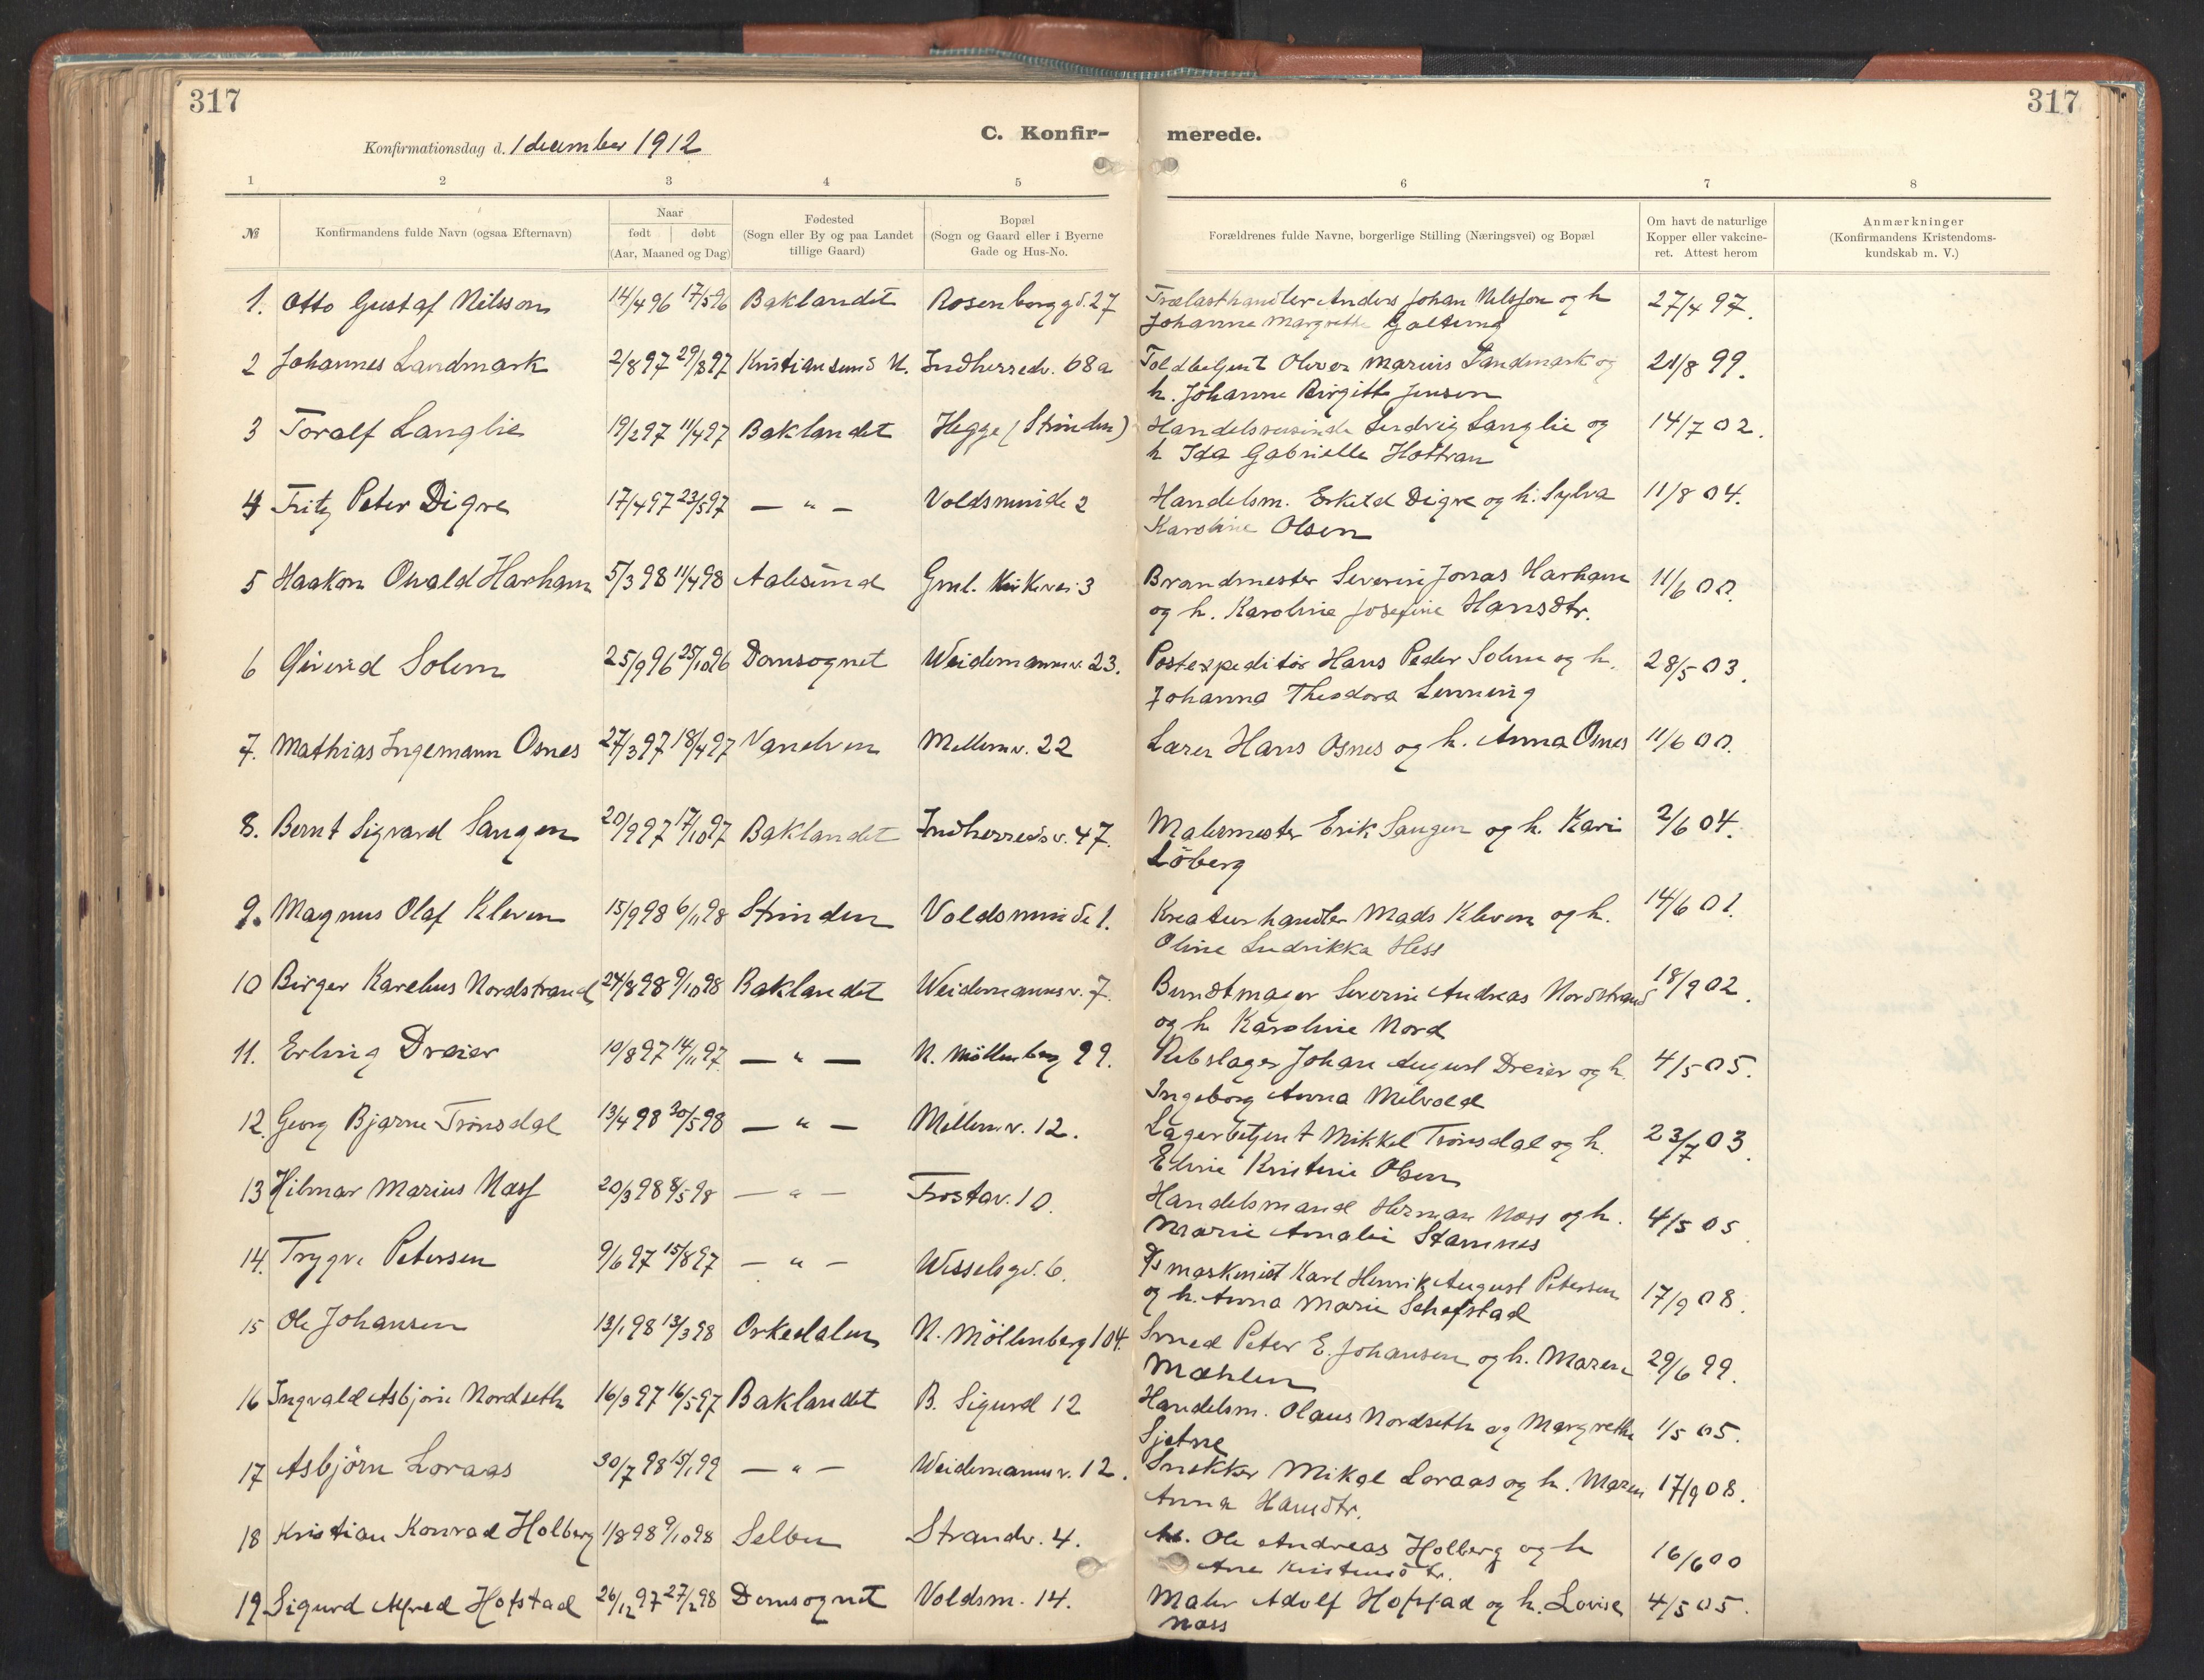 317
317
Konfirmationsdag d. 1 december 1912
C. Konfir-
merede.
1 2 3 4 5 6 7 8
№
Konfirmandens fulde Navn (ogsaa Efternavn)
Naar
født døbt
(Aar, Maaned og Dag)
Fødested
(Sogn eller By og paa Landet
tillige Gaard)
Bopæl
(Sogn og Gaard eller i Byerne
Gade og Hus-No.
Forældrenes fulde Navne, borgerlige Stilling (Næringsvei) og Bopæl
Om havt de naturlige
Kopper eller vakcine-
ret. Attest herom
Anmærkninger
(Konfirmandens Kristendoms-
kundskab m. V.)
1. Otto Gustaf Nilsson 14/4 96 17/5 96 Baklandet Rosenborggd. 27 Trælasthandler Anders Johan Nilsson og h 27/4 97.
Johanne Margrethe Galtung
2 Johannes Landmark 2/8 97 29/8 97 Kristiansund N. Indherredv. 68a Toldbetjent Oliver Marius Landmark og 21/8 99.
h. Johanne Birgitte Jensen
3 Toralf Langlie 19/2 97 11/4 97 Baklandet Hegge (Strinden) Handelsreisende Ludvig Langlie og 14/7 02.
h Ida Gabrielle Hottran
4 Fritz Peter Digre 17/4 97 23/5 97 — " — Voldsminde 2 Handelsm. Eskild Digre og h. Sylva 11/8 04.
Karoline Olsen
5 Haakon Osvald Harham 5/3 98 11/4 98 Aalesund Gml. Kirkevei 3 Brandmester Severin Jonas Harham 11/6 00.
og h. Karoline Josefine Hansdtr.
6 Øivind Solem 25/9 96 25/10 96 Domsognet Weidemannsv. 23. Postexpeditör Hans Peder Solem og h. 28/5 03.
Johanna Theodora Lenning
7. Mathias Ingemann Osnes 27/3 97 18/4 97 Vanelven Mellemv. 22 Lærer Hans Osnes og h. Anna Osnes 11/6 00.
8. Bernt Sigvard Saugen 20/9 97 17/10 97 Baklandet Indherredsv. 47. Malermester Erik Saugen og h. Kari 2/6 04.
Löberg
9. Magnus Olaf Kleven 15/9 98 6/11 98 Strinden Voldsminde 1. Kreaturhandler Mads Kleven og h. 14/6 01.
Oline Ludrikka Hess
10 Birger Karelius Nordstrand 24/8 98 9/10 98 Baklandet Weidemannsv. 7. Bundtmager Severin Andreas Nordstrand 18/9 02.
og h. Karoline Nord
11. Erling Dreier 10/8 97 14/11 97 — " — N. Möllenberg 99. Rebslager Johan August Dreier og h. 4/5 05.
Ingeborg Anna Melvold
12. Georg Bjarne Trönsdal 13/4 98 30/5 98 — " — Mellemv. 12. Lagerbetjent Mikkel Trönsdal og h. 23/7 03.
Eline Kristine Olsen
13 Hilmar Marius Næss 20/3 98 8/5 98 — " — Frostav. 10. Handelsmand Herman Næss og h. 4/5 05.
Marie Amalie Stamnes
14. Trygve Petersen 9/6 97 15/8 97 — " — Wesselsgd. 6. D/s maskinist Karl Henrik August Petersen 17/9 08.
og h. Anna Marie Schefstad
15 Ole Johansen 13/1 98 13/3 98 Orkedalen N. Möllenberg 104. Smed Peter E. Johansen og h. Maren 29/6 99.
Mæhlen
16 Ingvald Asbjörn Nordseth 16/3 97 16/5 97 Baklandet B. Sigurd 12 Handelsm. Olaus Nordseth og Margrethe 1/5 05.
Sjetne
17 Asbjörn Loraas 30/7 98 15/1 99 — " — Weidemannsv. 12. Snekker Mikal Loraas og h. Maren 17/9 08.
Anna Hansdtr.
18 Kristian Konrad Holberg 1/8 98 9/10 98 Selbu Strandv. 4. Ole Andreas Holberg og h 16/6 00
Ane Kristensdtr.
19 Sigurd Alfred Hofstad 26/12 97 27/2 98 Domsognet Voldsm. 14. Maler Adolf Hofstad og h. Lovise 4/5 05.
Næss